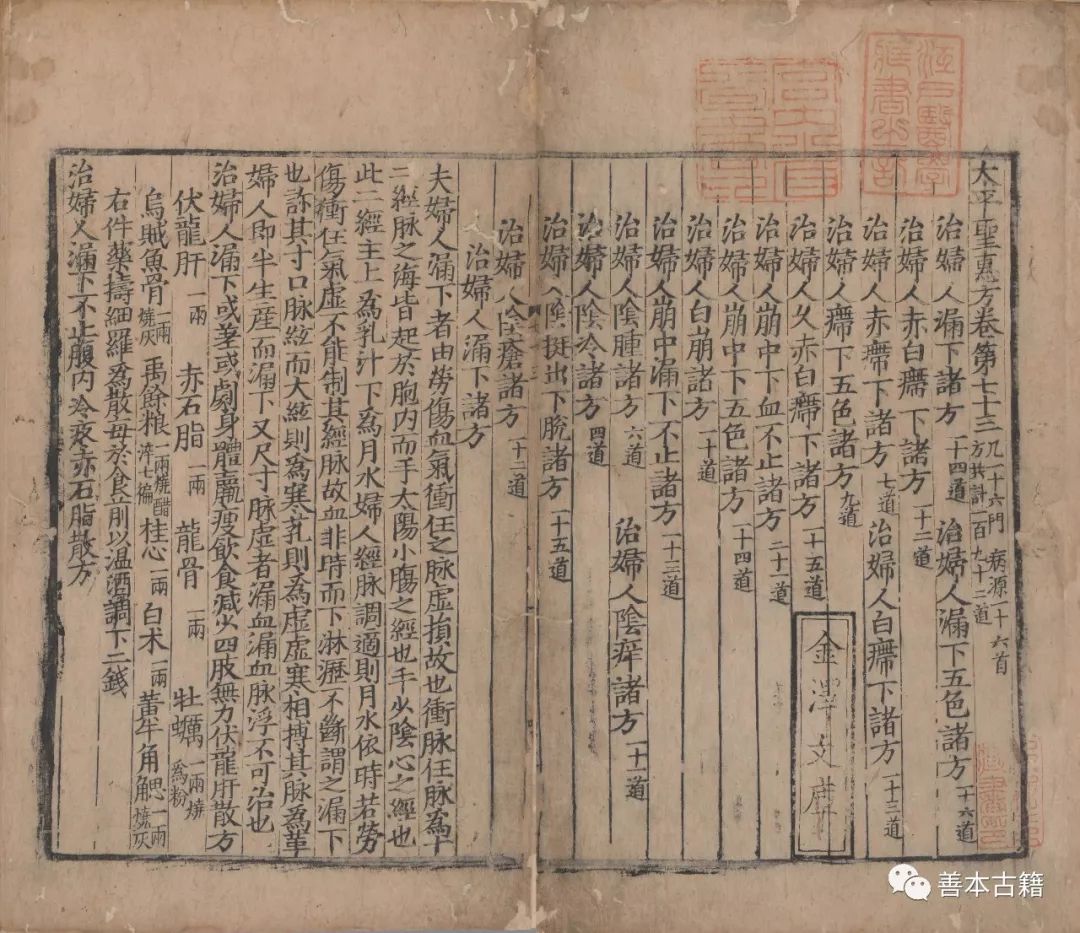 大平聖惠方卷第七十三 凡一十六門 病源一十六首
方共計一百九十二道
治婦人漏下諸方 一十四道 治婦人漏下五色諸方 一十六道
治婦人赤白癘下諸方 一十二道
治婦人赤癘下諸方 七道 治婦人白癘下諸方 一十三道
治婦人癘下五色諸方 九道
治婦人久赤白癘下諸方 一十五道
治婦人崩中下血不止諸方 二十一道
治婦人崩中下五色諸方 一十四道
治婦人白崩諸方 一十道
治婦人崩中漏下不止諸方 一十三道
治婦人陰腫諸方 六道 治婦人陰痒諸方 一十一道
治婦人陰冷諸方 四道
治婦人陰挺出下脫諸方 一十五道
治婦人陰瘡諸方 一十二道
治婦人漏下諸方
夫婦人漏下者由勞傷血氣衝任之脉虛損故也衝脉任脉爲十
二經脉之海皆起於胞內而手太陽小腸之經也手少陰心之經也
此二經主上爲乳汁下爲月水婦人經脉調適則月水依時若勞
傷衝任氣虛不能制其經脉故血非時而下淋瀝不斷謂之漏下
也診其寸口脉絃而大絃則爲寒乳則爲虛虛寒相搏其脉爲革
婦人即半生産而漏下又尺寸脉虛者漏血漏血脉浮不可治也
治婦人漏下或差或劇身體羸瘦飲食減少四肢無力伏龍肝散方
伏龍肝 一兩 赤石脂 一兩 龍骨 一兩 牡蠣 一兩燒爲粉
烏賊魚骨 一兩燒灰 禹餘粮 一兩燒醋淬七徧 桂心 一兩 白朮 一兩 黃牛角䚡 一兩燒灰
右件藥擣細羅爲散每於食前以温酒調下二錢
治婦人漏下不止腹內冷疼赤石脂散方
金澤文庫
江戶醫學藏書之記
善本古籍